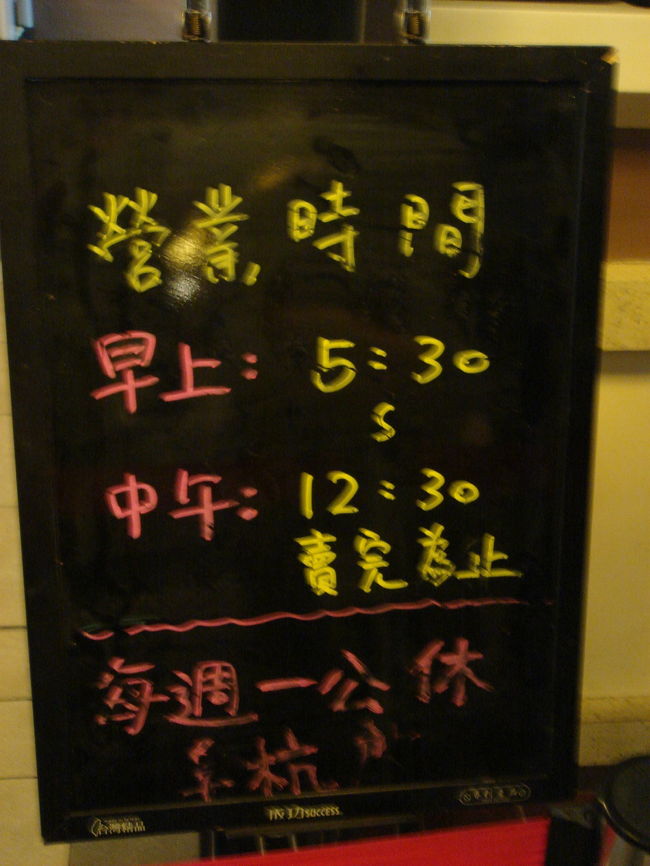 營業時間
早上：5：30
S
中午：12：30
賣完為止
每週一公休
台灣精品 成功success.